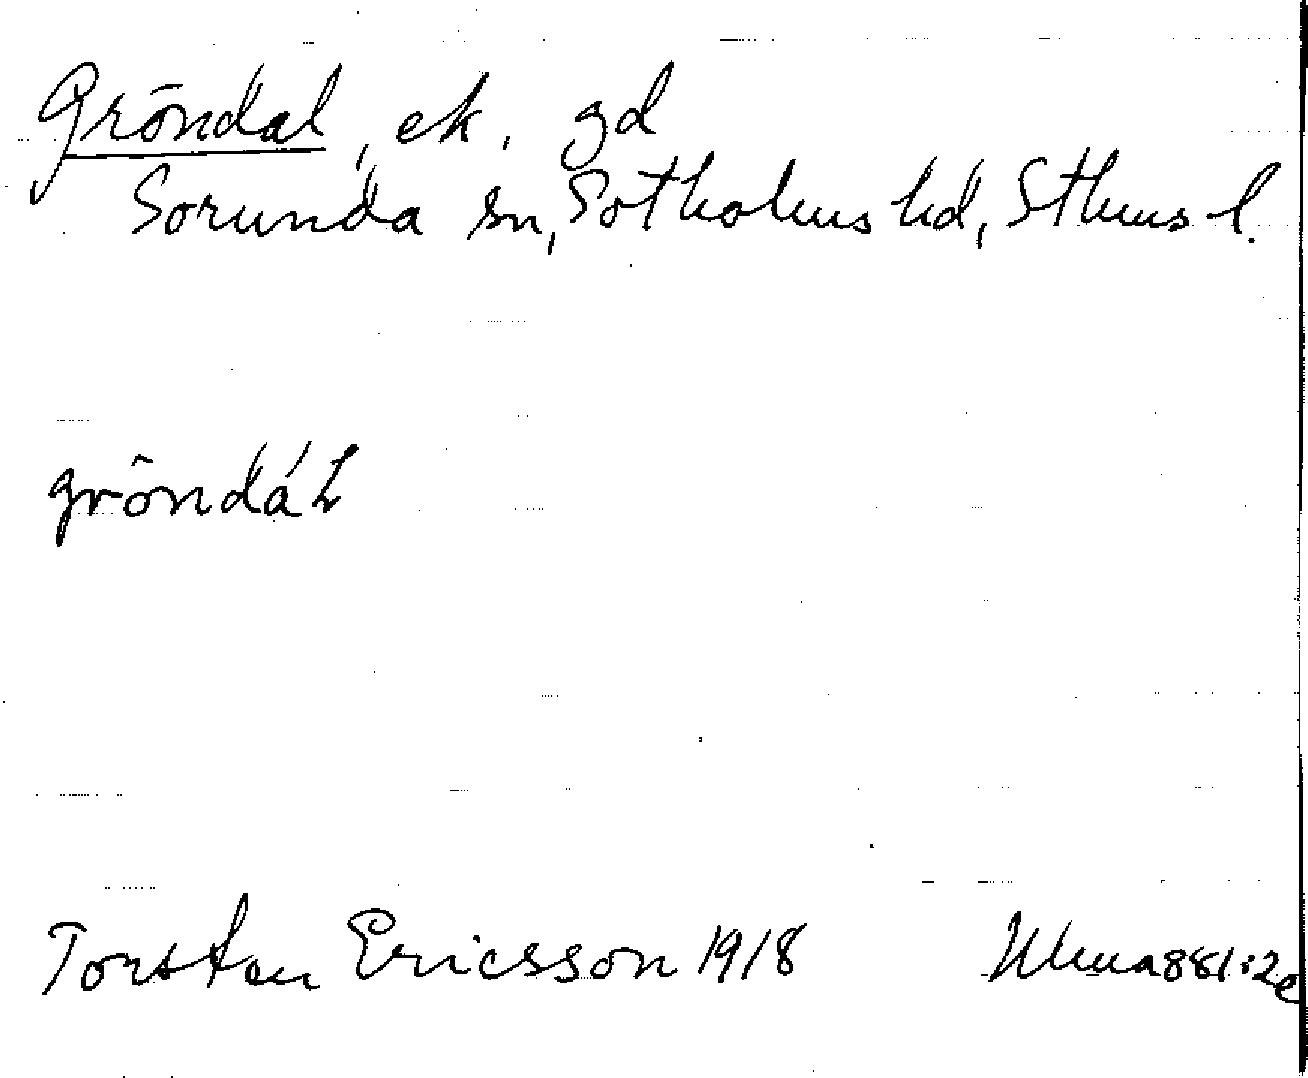 Gröndal, ek. gd
Sorunda sn, Sotholms hd, Sthms l.
gröndáL
Torsten Ericsson 1918 Ulma 881:2e